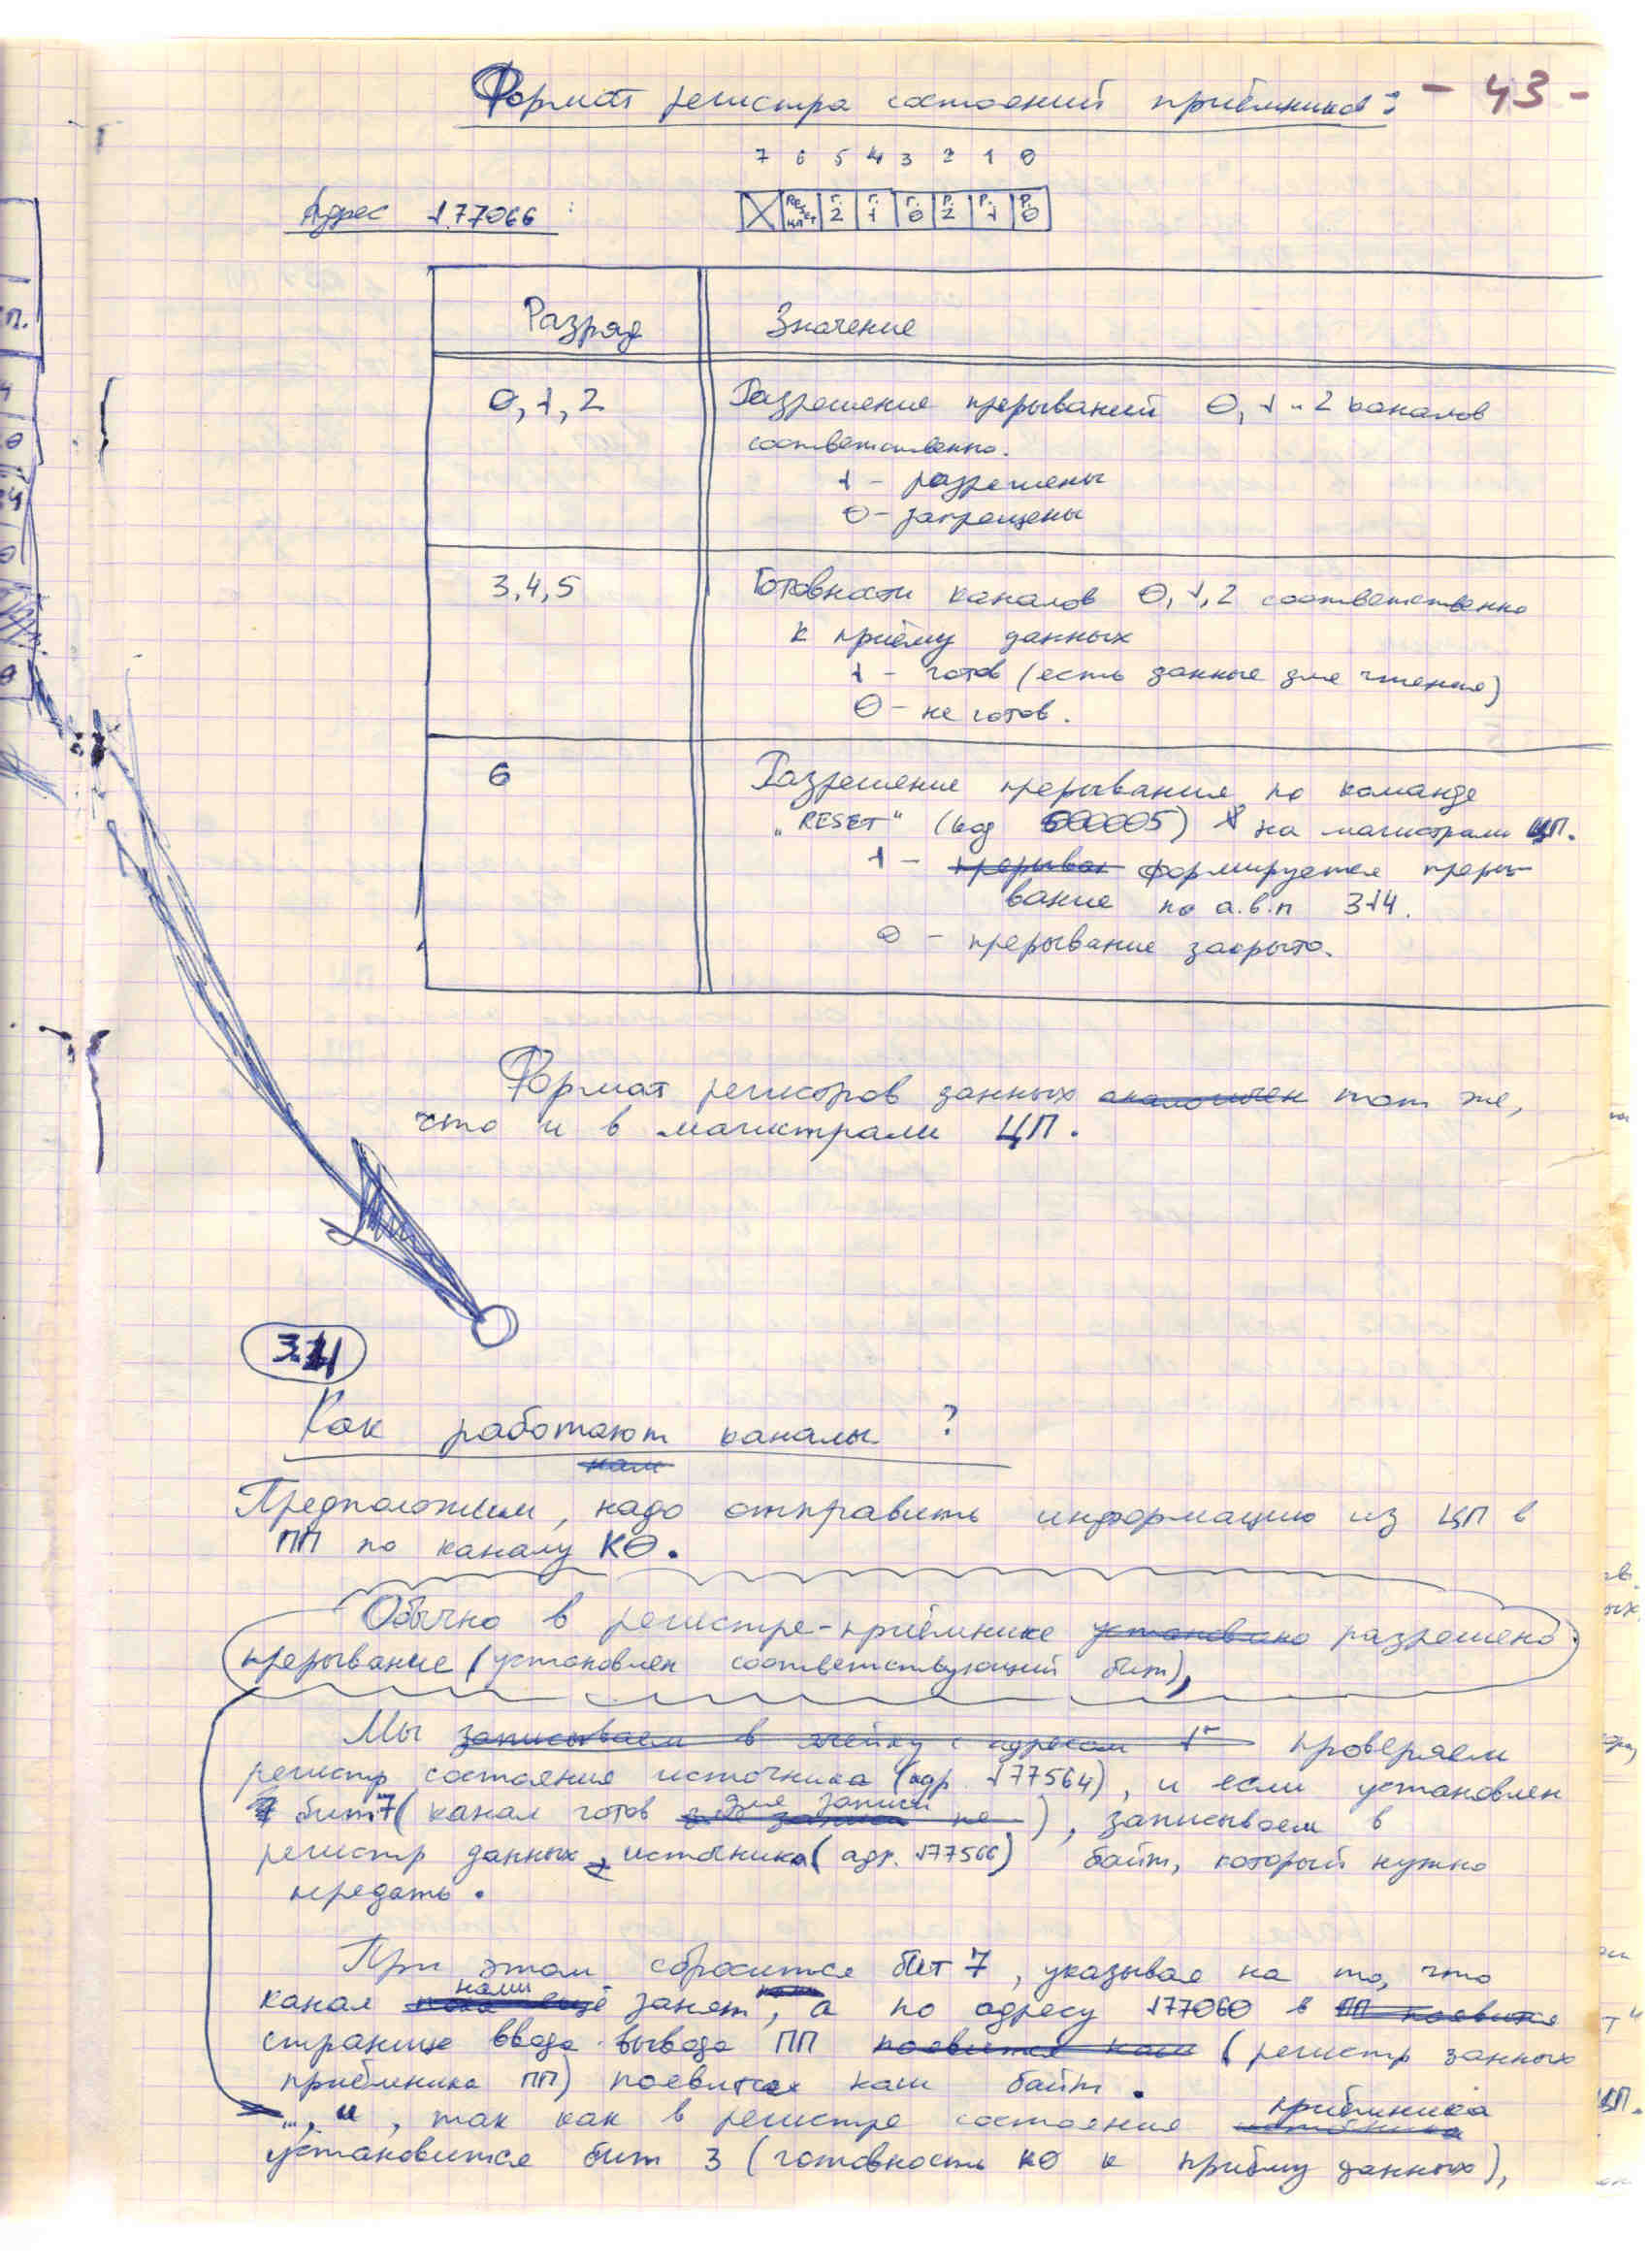 Формат регистра состояний приёмника: - 43 -
7 6 5 4 3 2 1 0
Адрес 177066 :
RESET ЦП Г.2 Г.1 Г.0 Р.2 Р.1 Р.0
Разряд Значение
0, 1, 2 Разрешение прерываний 0, 1 и 2 каналов
соответственно.
1 - разрешены
0 - запрещены
3,4,5 Готовности каналов 0, 1, 2 соответственно
к приёму данных
1 - готов (есть данные для чтения)
0 - не готов.
6 Разрешение прерывания по команде
"RESET" (код 000005) на магистрали ЦП.
1 - прерыван формируется преры-
вание по а.в.п 314.
0 - прерывание закрыто.
Формат регистров данных аналогичен тот же,
что и в магистрали ЦП.
Как работают каналы ?
нам
Предположим, надо отправить информацию из ЦП в
ПП по каналу К0.
Обычно в регистре-приёмнике установлено разрешено
прерывание (установлен соответствующий бит),
Мы записываем в ячейку с адресом 1 проверяем
регистр состояния источника (адр. 177564), и если установлен
бит 7 (канал готов для записи), записываем в
регистр данных источника (адр. 177566) байт, который нужно
передать.
При этом сбросится бит 7, указывая на то, что
канал нами занят, а по адресу 177060 в ПП появится
странице ввода-вывода ПП появится наш (регистр данных
приёмника ПП) появится наш байт.
..., и, так как в регистре состояния приёмника
установится бит 3 (готовность К0 к приёму данных),